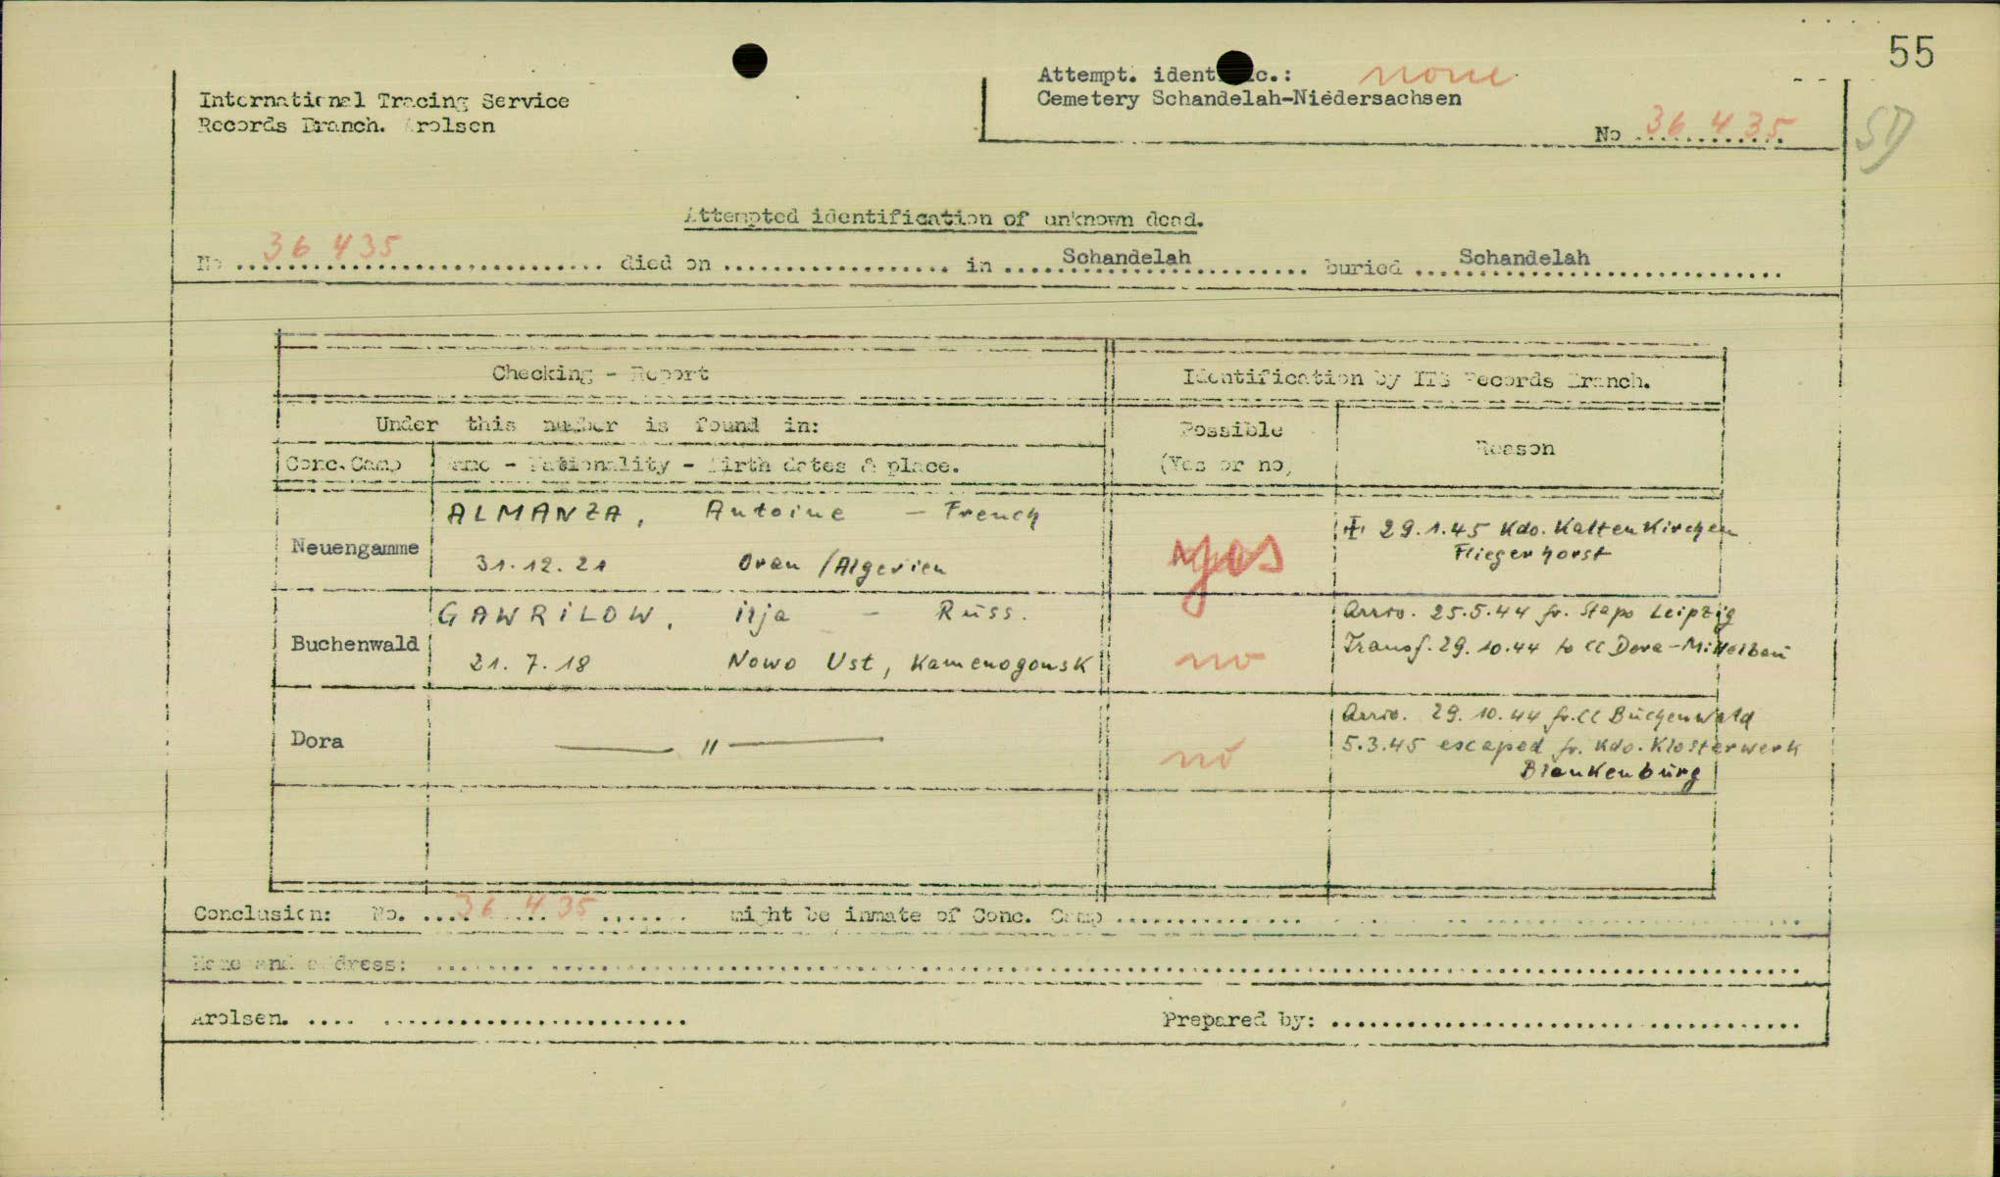 55
International Tracing Service
Records Branch. Arolsen
Attempt. identific.: none
Cemetery Schandelah-Niedersachsen
No 36 435
SD
Attempted identification of unknown dead.
No 36 435 died on .................. in Schandelah buried Schandelah
Checking - Report
Identification by ITS Records Branch.
Under this number is found in:
Possible
(Yes or no)
Reason
Conc.Camp Name - Nationality - Birth dates & place.
Neuengamme
ALMANZA, Antoine - French
31.12.21 Oran /Algerien
yes
† 29.1.45 Kdo. Kaltenkirchen
Fliegerhorst
Buchenwald
GAWRILOW, Ilja - Russ.
21.7.18 Nowo Ust, Kamenogonsk
no
Arriv. 25.5.44 fr. Stapo Leipzig
Transf. 29.10.44 to CC Dora-Mittelbau
Dora
— " —
no
Arriv. 29.10.44 fr. CC Buchenwald
5.3.45 escaped fr. Kdo. Klosterwerk
Blankenburg
Conclusion: No. 36 435 might be inmate of Conc. Camp ..............
Name and address: ..............
Arolsen. ..............
Prepared by: ..............